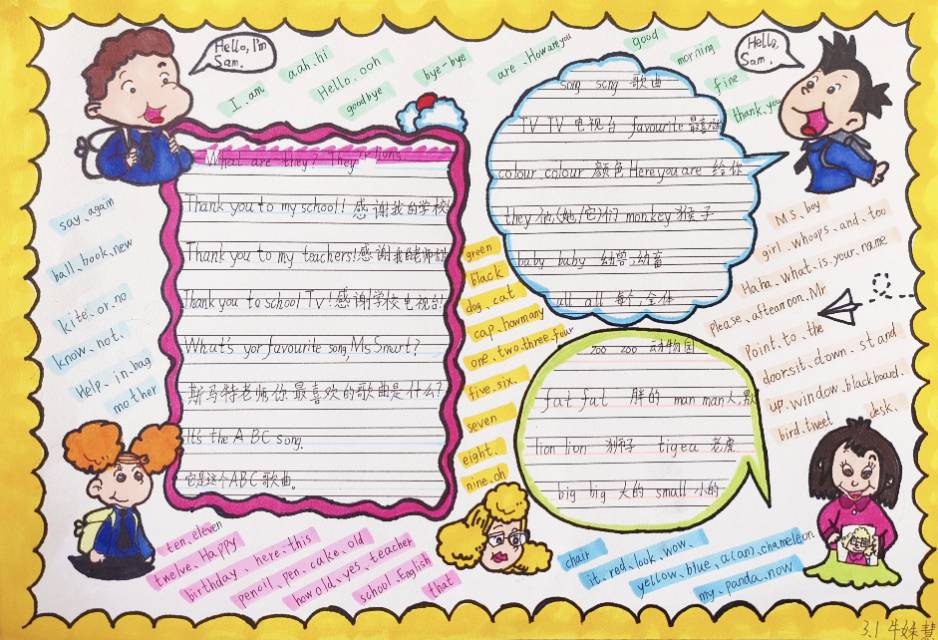 Hello, I'm
Sam.
aah. hi
Hello. ooh
goodbye
I. am
bye-bye
are. How are you
good
morning
fine
thank. you
Hello,
Sam.
What are they? They're lions
Thank you to my school! 感谢我的学校!
Thank you to my teachers! 感谢我老师
Thank you to school TV! 感谢学校电视台!
What's yor favourite song, Ms Smart?
斯马特老师你最喜欢的歌曲是什么?
It's the ABC song.
它是这个ABC歌曲。
song song 歌曲
TV TV 电视台 favourite 最喜
colour colour 颜色 Here you are 给你
they 他(她/它)们 monkey 猴子
baby baby 幼兽,幼畜
all all 每个,全体
zoo zoo 动物园
fat fat 胖的 man man 人,
lion lion 狮子 tigea 老虎
big big 大的 small 小的
say. again
ball. book. new
kite. or. no
know. not.
Help. in. bag
mother
green
black
dog. cat
cap. how many
one. two. three. four
five. six.
seven
eight.
nine. oh
Ms. boy
girl. whoops. and. too
Haha. what. is. your. name
please. afteornoon. Mr
Point. to. the
door. sit. down. stand
up. window. blackboard.
bird. tweet desk.
ten. eleven
twelve. Happy
birthday. here. this
pencil. pen. cake. old
how old. yes. teacher
school. English
that
chair
it. red. look. wow.
yellow. blue. a(an). chameleon
my. panda. now
3.1 牛姝慧